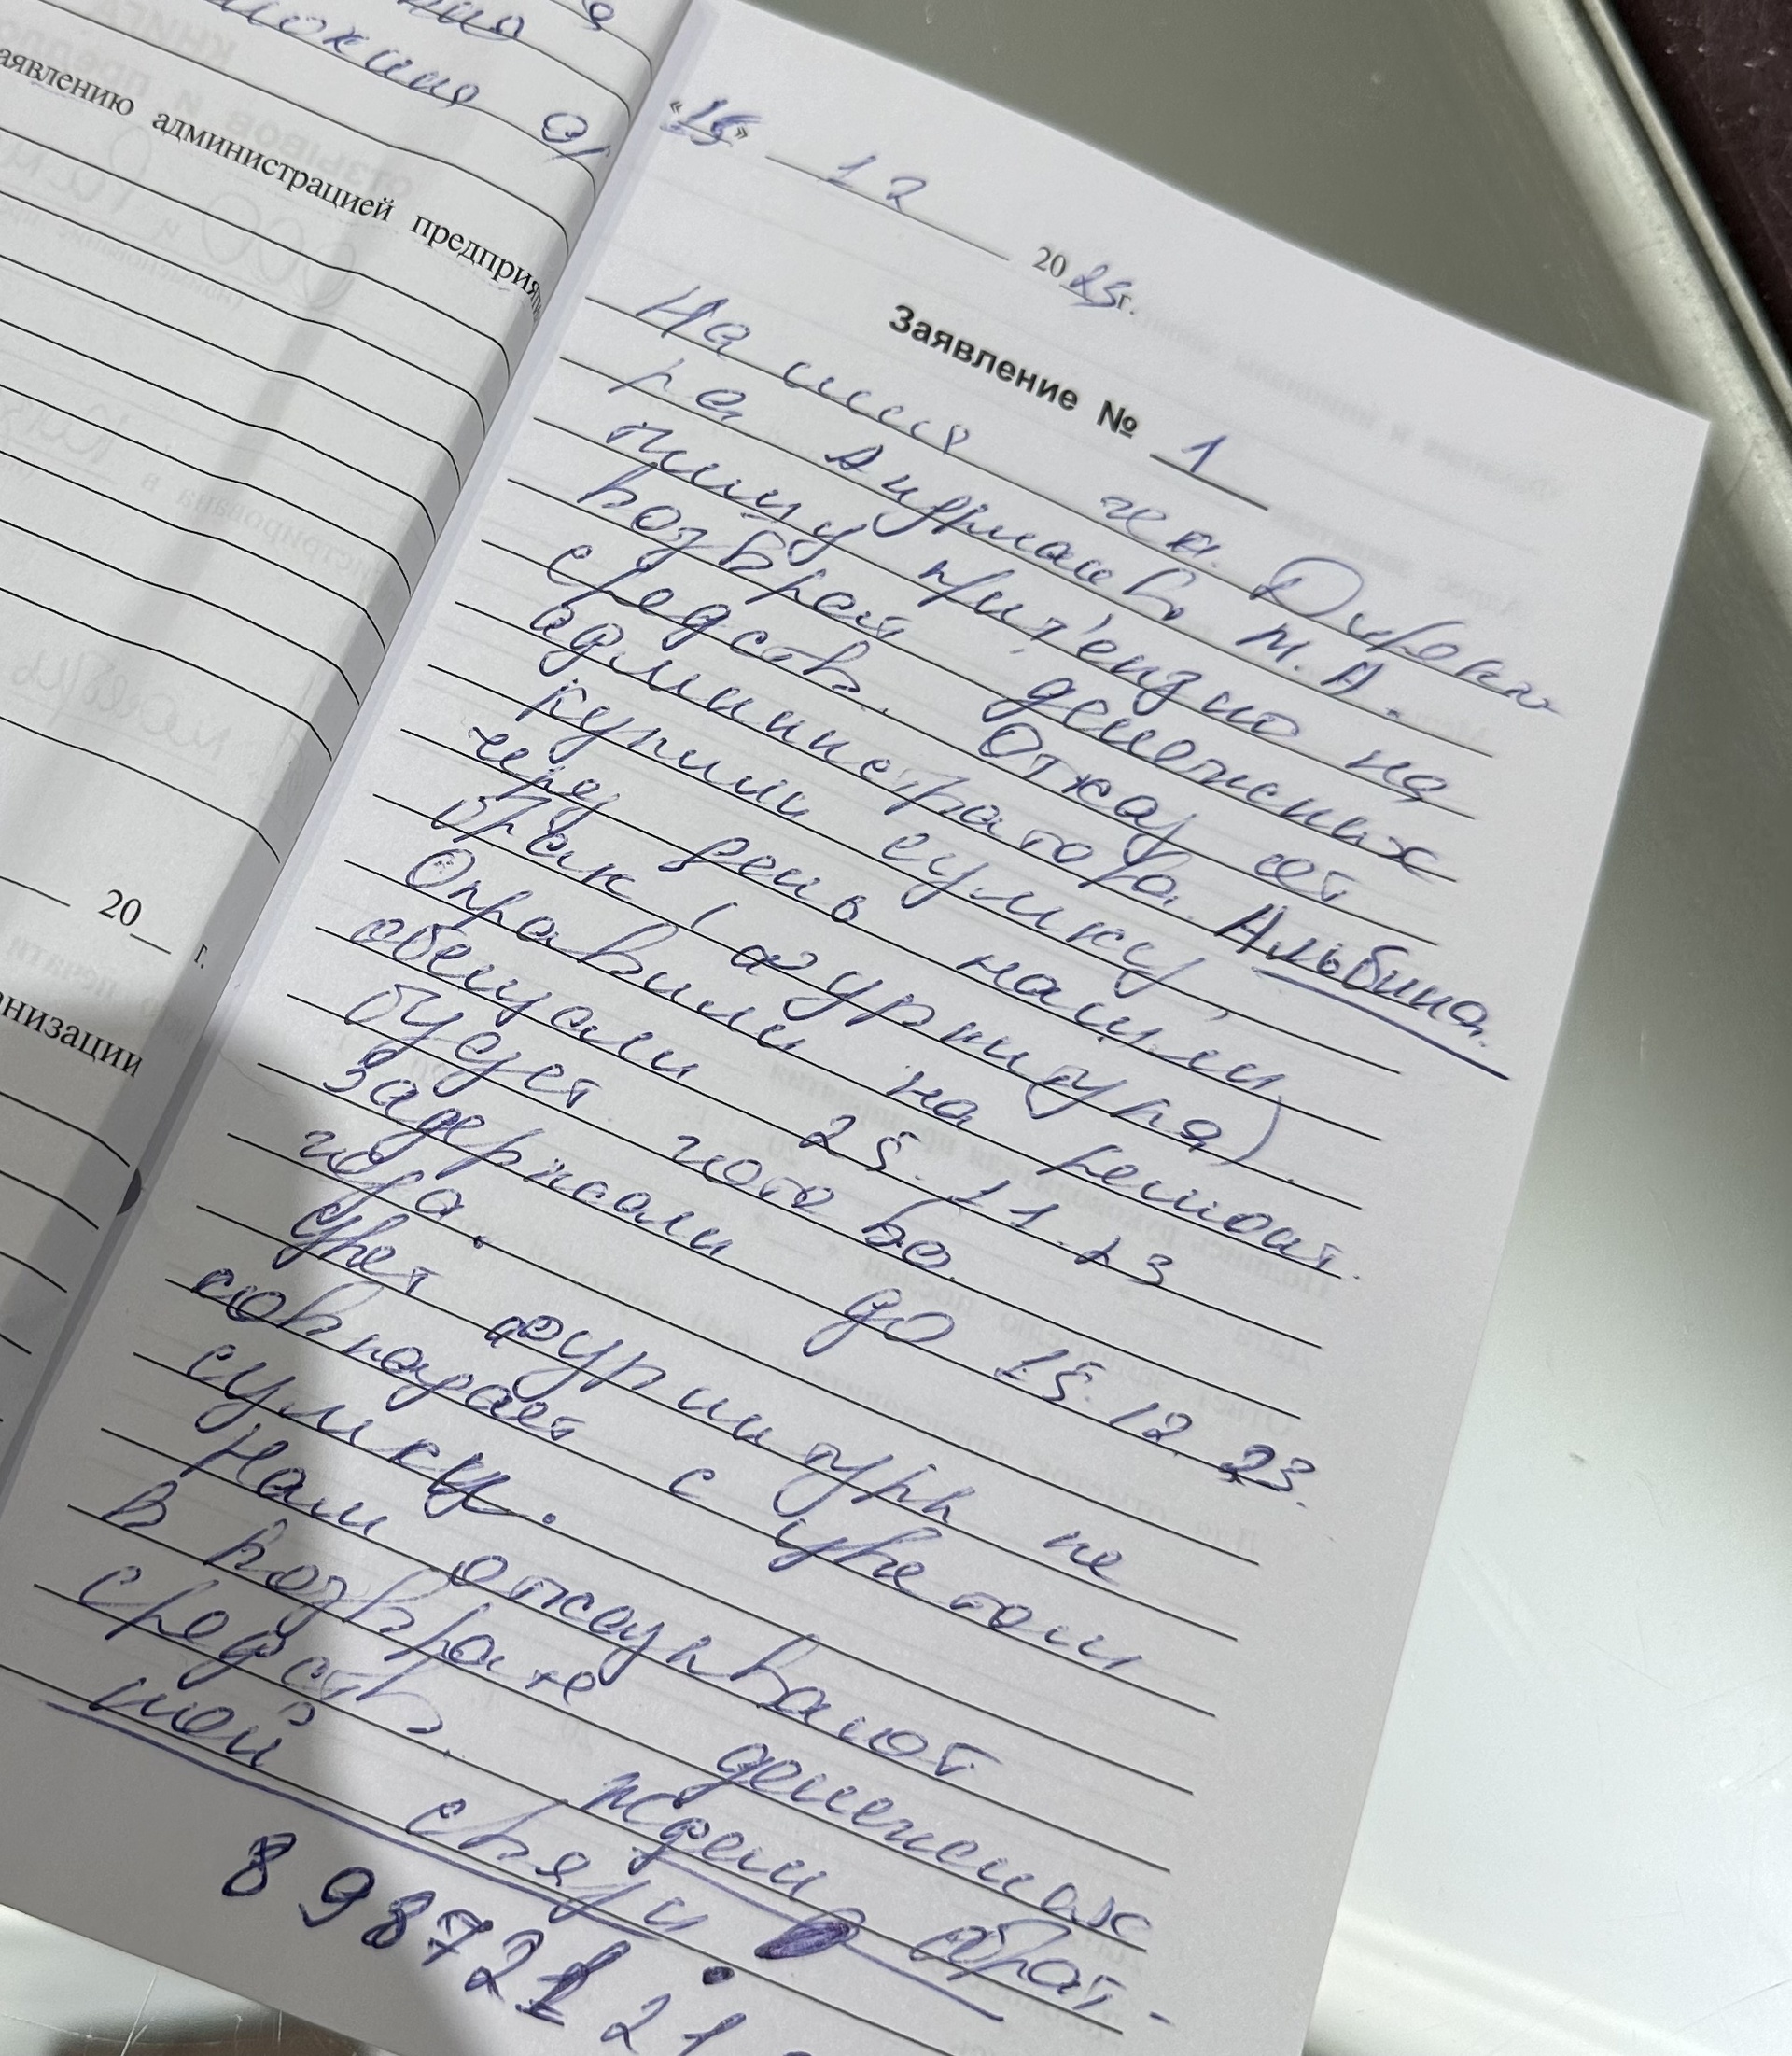 ложение
аявлению администрацией предприя
20__ г.
низации
"15" 12 2023г.
Заявление № 1
На имя ген. Директо
ра М. А.
пишу притензию на
возврат денежных
средств. Отказ от
администратора Альбина.
купили сумку,
через день нашли
брак (фурнитура).
Оправили на ремонт.
обещали 25.11.23
будет готова.
Задержали до 15.12.23.
цвет фурнитуры не
совпадает с цветом
сумки.
Нам отказывают
в возврате денежных
средств. Ждем обрат-
ной связи
8 987 21 21